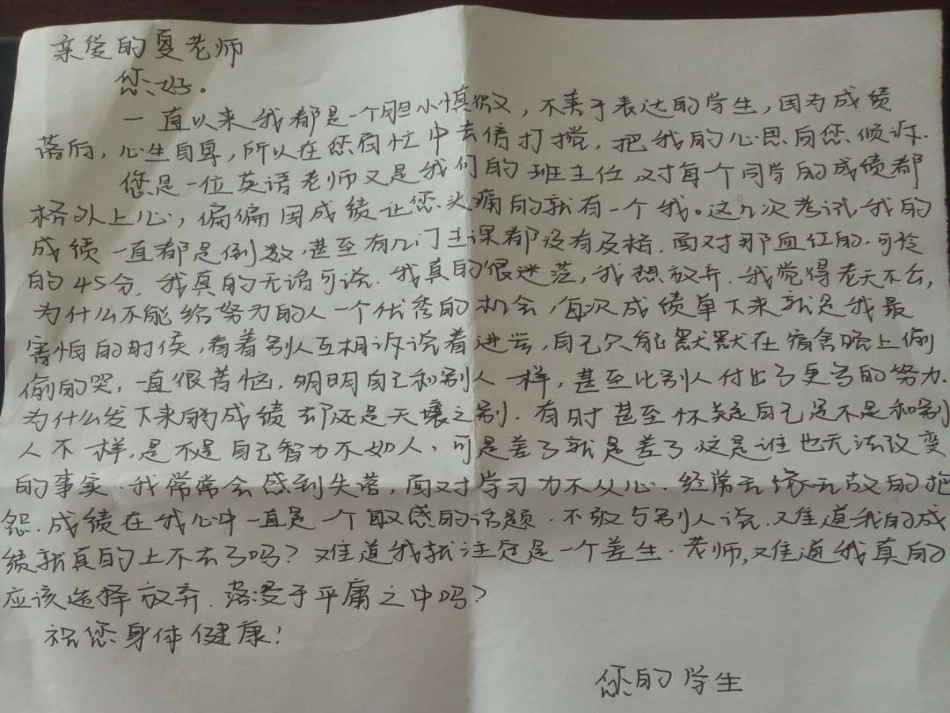 亲爱的夏老师
您好。
一直以来我都是一个胆小慎微,不善于表达的学生,因为成绩
落后,心生自卑,所以在您百忙中去信打搅,把我的心思向您倾诉.
您是一位英语老师又是我们的班主任,对每个同学的成绩都
格外上心,偏偏因成绩让您头痛的就有一个我。这几次考试我的
成绩一直都是倒数,甚至有几门主课都没有及格.面对那血红的.可怜
的45分.我真的无语可说.我真的很迷茫,我想放弃.我觉得老天不公,
为什么不能给努力的人一个优秀的机会,每次成绩单下来就是我最
害怕的时候,看着别人互相诉说着进步,自己只能默默在宿舍晚上偷
偷的哭,一直很苦恼,明明自己和别人一样,甚至比别人付出了更多的努力.
为什么发下来的成绩却还是天壤之别.有时甚至怀疑自己是不是和别
人不一样,是不是自己智力不如人,可是差了就是差了这是谁也无法改变
的事实.我常常会感到失落,面对学习力不从心.经常无缘无故的抱
怨.成绩在我心中一直是一个敏感的话题.不敢与别人说.难道我的成
绩就真的上不去了吗?难道我就注定是一个差生.老师,难道我真的
应该选择放弃.落没于平庸之中吗?
祝您身体健康!
您的学生